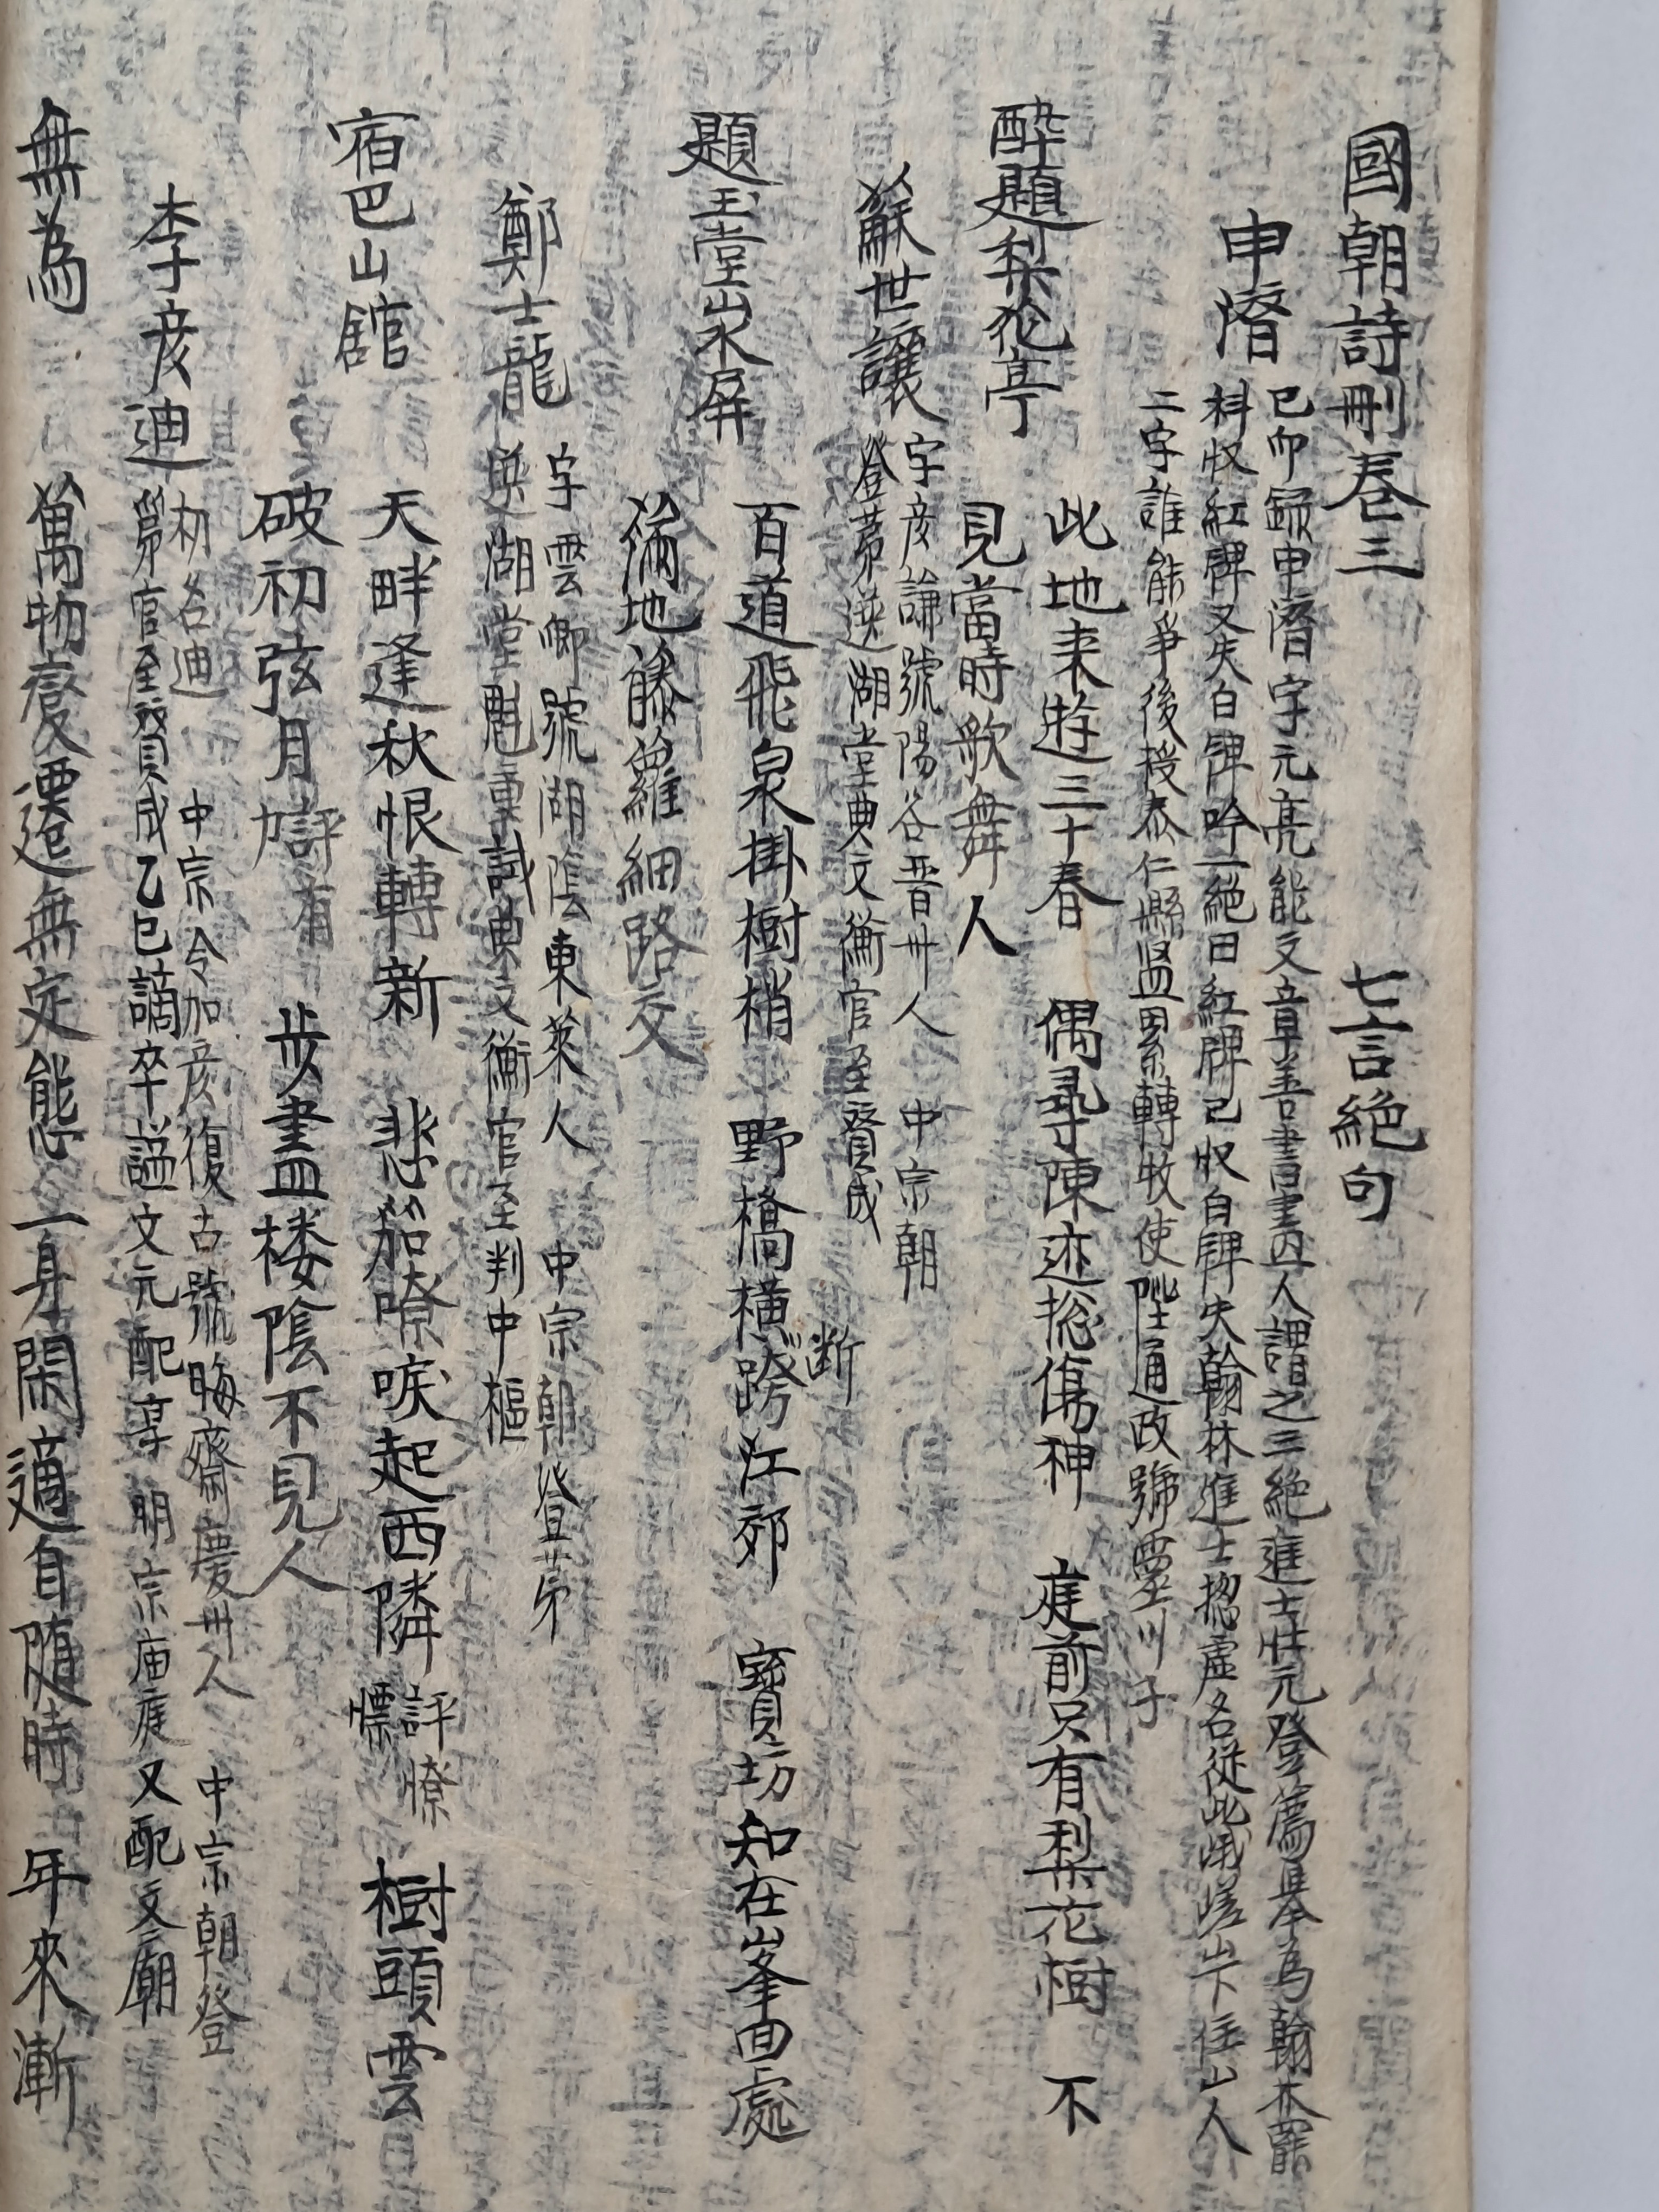 國朝詩刪卷三　七言絶句
申潛
己卯録申潛字元亮能文章善書畫四人謂之三絶進士壮元登薦擧為翰林罷
科収紅牌又失白牌吟一絶曰紅牌已収白牌失翰林進士揔虚名従此嵯峨山下住山人
二字誰能爭後授泰仁縣監累轉牧使陞通政號靈川子
酔題梨花亭
此地来遊三十春　偶尋陳迹揔傷神　庭前只有梨花樹　不
見當時歌舞人
蘇世讓
字彦謙號陽谷晋州人　中宗朝
登第選湖堂典文衡官至賛成
題玉堂山水屏
百道飛泉掛樹梢　野橋橫跨江郊　寶坊知在峯回處
断
滿地藤蘿細路交
鄭士龍
字雲卿號湖陰東萊人　中宗朝登第
選湖堂魁重試典文衡官至判中樞
宿巴山館
天畔逢秋恨轉新　悲笳嘹唳起西隣　樹頭雲
評憭
慓
破初弦月　歩盡楼陰不見人
評有
力
李彦迪
初名迪　中宗令加彦復古號晦齋慶州人　中宗朝登
第官至賛成乙巳謫卒謚文元配享明宗庙庭又配文廟
無為
萬物變遷無定態　一身閑適自随時　年來漸